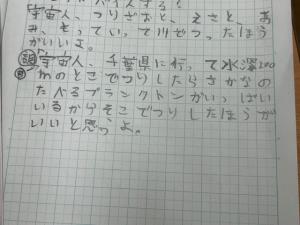 宇宙人、つりざおと、えさと、あ
み、もっていって川でつったほう
がいいよ。
宇宙人、千葉県に行って水深200
mのとこでつりしたらさかなの
たべるプランクトンがいっぱい
いるからそこでつりしたほうが
いいと思うよ。